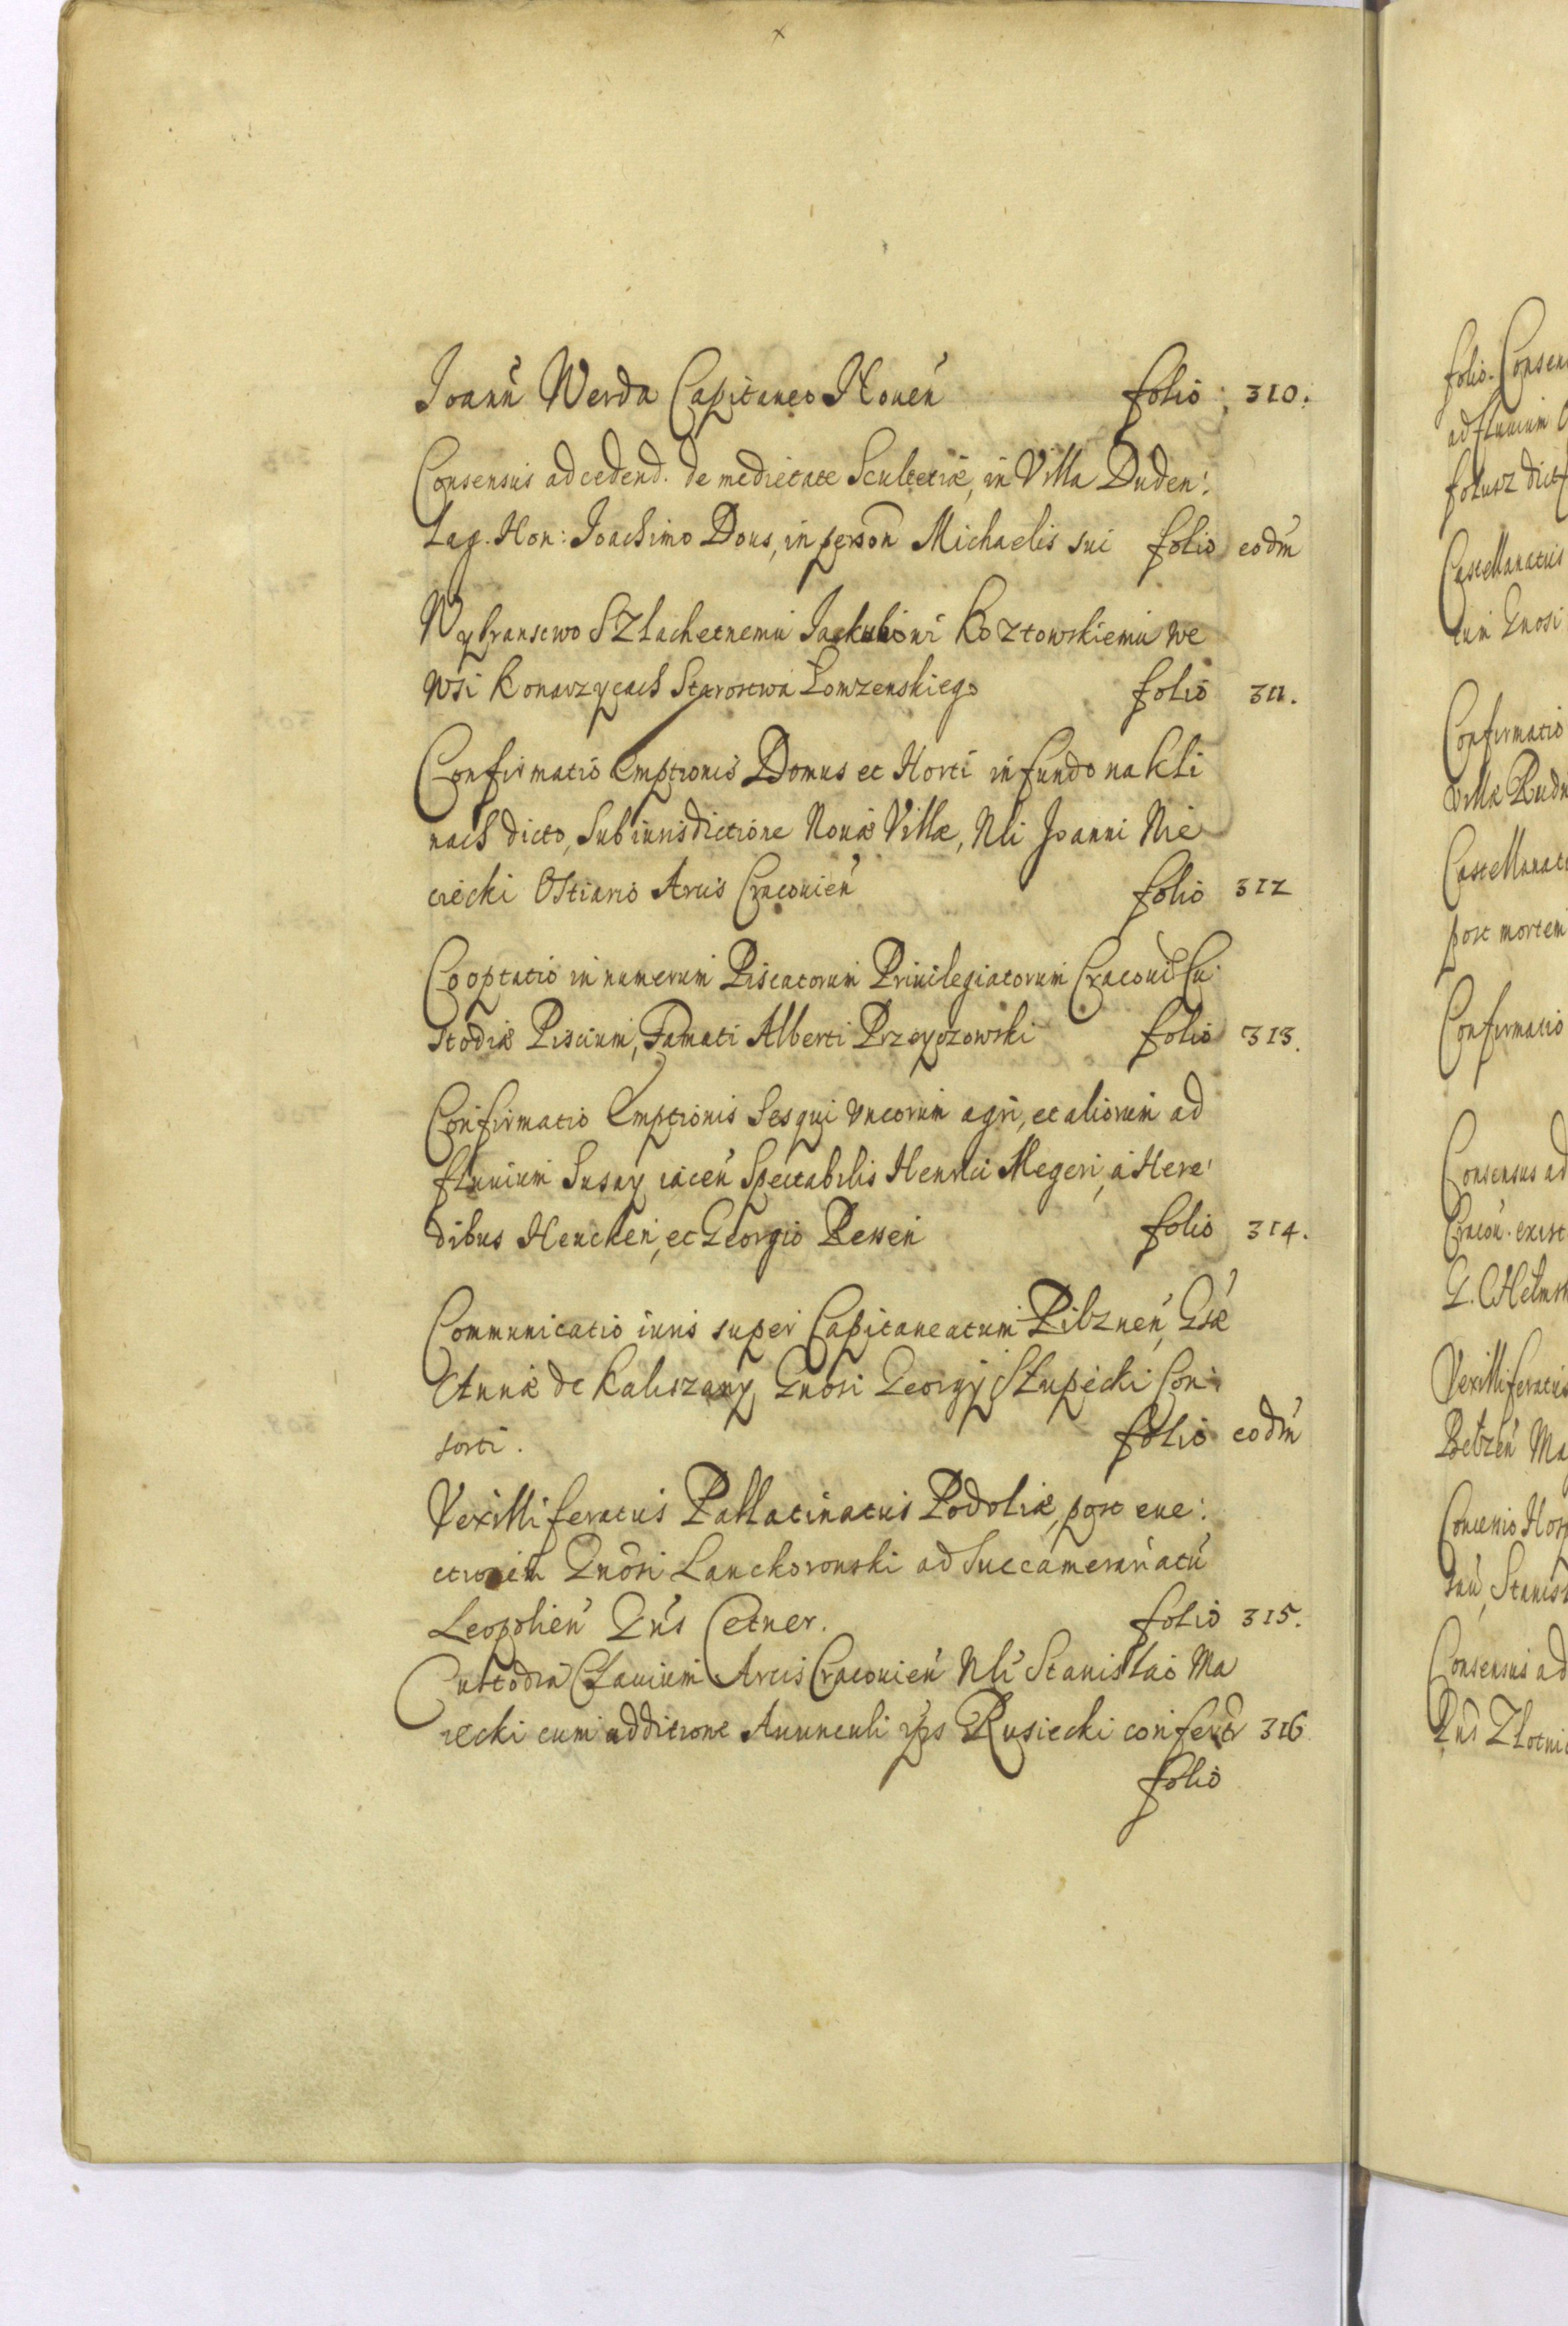 Joann̄ Werda Capitaneo Noueń folio 310.
Consensus ad cedend. de medietate Scultetiæ, in Villa Duden:
Lag. Hon: Joachimo Dous, in person̄ Michaelis sui folio eodm̄
Wybranstwo Szlachetnemu Jackubowi Kozłowskiemu we
Wsi Konarzycach Starostwa Łomzenskiego folio 311.
Confirmatio Emptionis Domus et Horti in fundo na kli
nach dicto, sub iurisdictione Nouæ Villæ, Nli Joanni Nie
ciecki Ostiario Arcis Cracouień folio 312
Cooptatio in numerum Piscatorum Priuilegiatorum Cracou. Cu:
stodiæ Piscium, Famati Alberti Przeyczowski folio 313.
Confirmatio Emptionis Sesqui Vncorum agri, et aliorum ad
fluuium Susny iaceń Spectabilis Henrici Megeri, à Here:
dibus Hencken, et Georgio Ressen folio 314.
Communicatio iuris super Capitaneatum Pilzneń, Gsæ
Annæ de Kaliszany, Gnosi Georgij Słupecki Con:
sorti. folio eodm̄
Vexilliferatus Pallatinatus Podoliæ, post eue:
ctionem Gnosi Lanckoronski ad Succamerariatū
Leopolień Gńs Cetner. folio 315.
Custodia Clauium Arcis Cracouień Nli Stanislao Ma
recki cum additione Auunculi ips Rusiecki confert̄ 316
folio
folio. Consen
ad fluuium
folusz dict
Castellanatus
tum Gnosi
Confirmatio
Villæ Rudn
Castellanat
post mortem
Confirmatio
Consensus ad
Cracou. exist
G. Chelmsk
Vexilliferatus
Bełzeń Ma
Concessio Hor
Stanis
Consensus ad
Gns Złotni